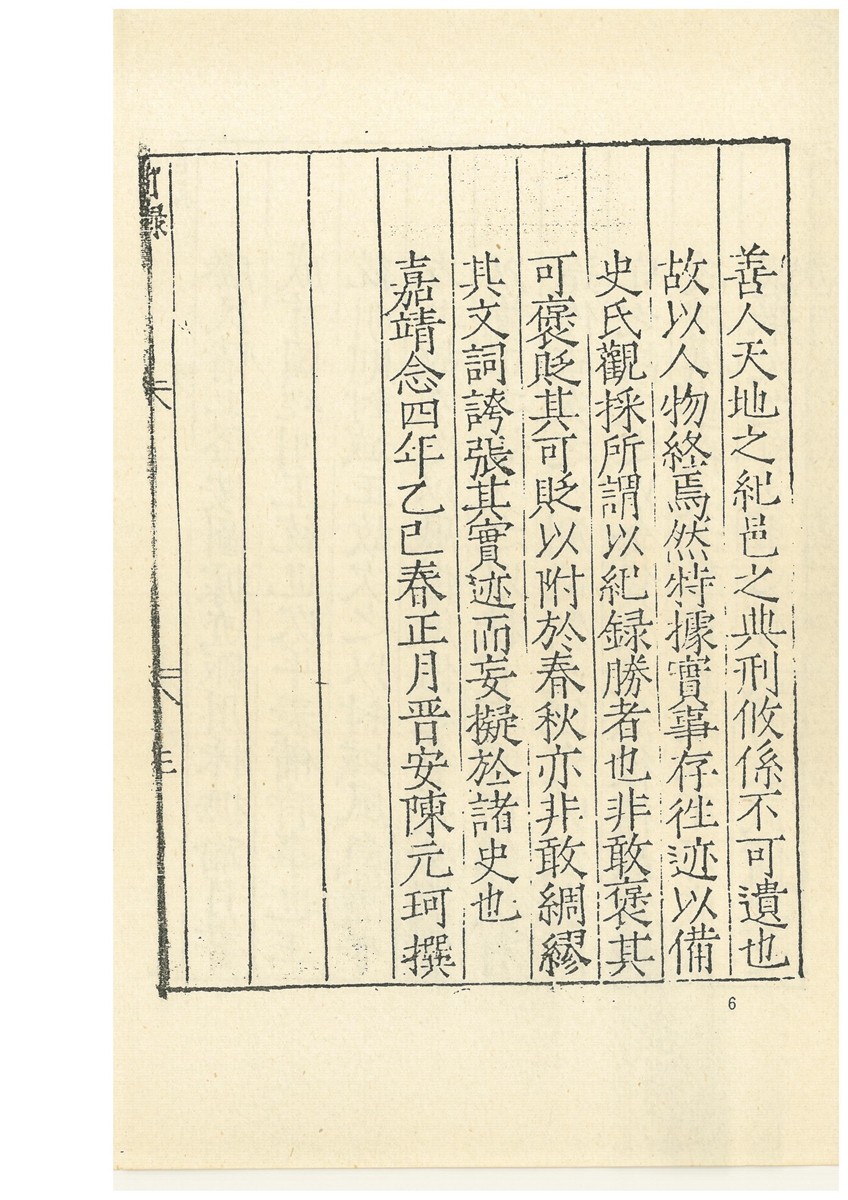 善人天地之紀邑之典刑攸係不可遺也
故以人物終焉然特據實事存徃迹以備
史氏觀採所謂以紀録勝者也非敢褒其
可褒貶其可貶以附於春秋亦非敢綢繆
其文詞誇張其實迹而妄擬於諸史也
嘉靖念四年乙巳春正月晉安陳元珂撰
6